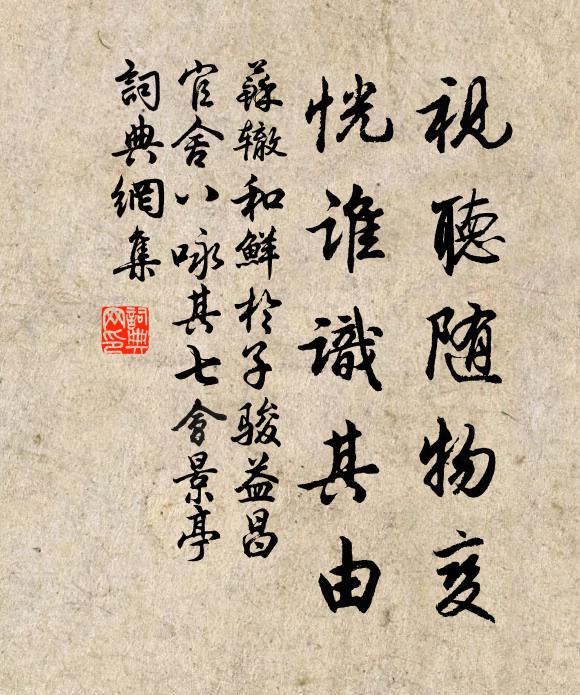 視聽随物变
恍誰識其由
蘇辙和鮮於子骏益昌
官舍八咏其七會景亭
詞典網集
詞典
网印